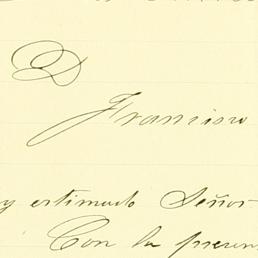 D
Francisco
y estimado Señor
Con la presen